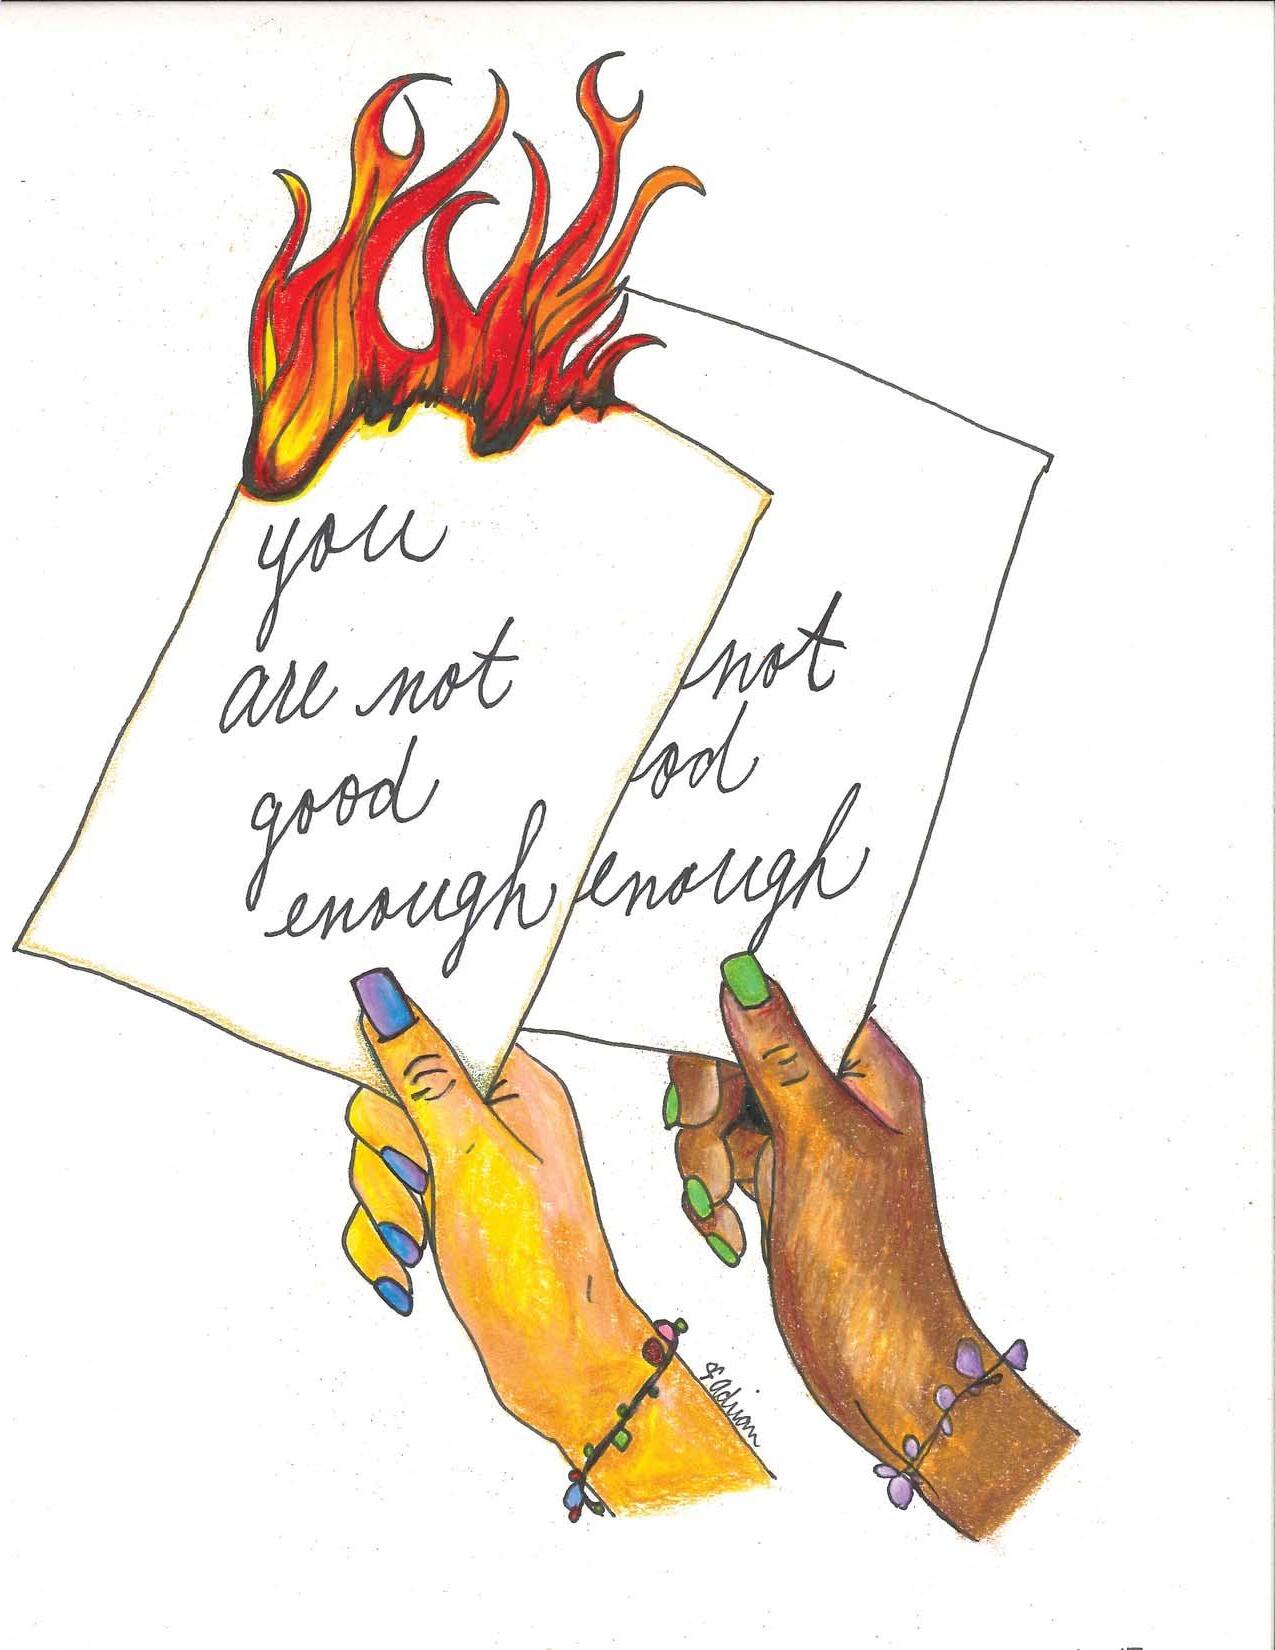 you
are not
good
enough
not
od
enough